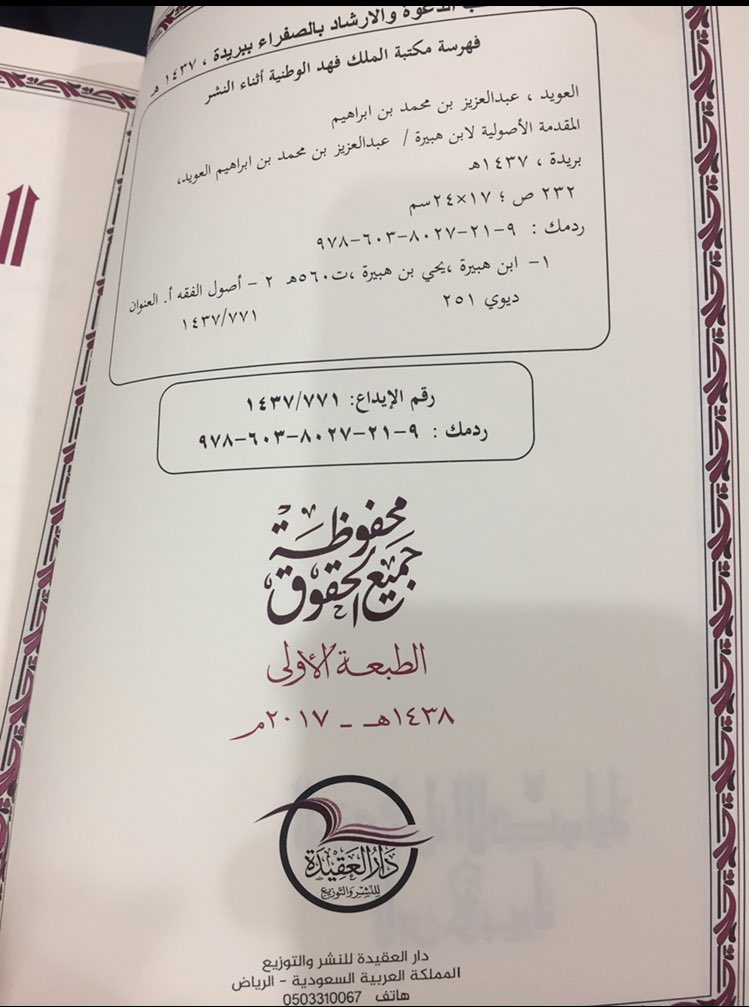 الدعوة والارشاد بالصفراء ببريدة ، ١٤٣٧ هـ
فهرسة مكتبة الملك فهد الوطنية أثناء النشر
العويد ، عبدالعزيز بن محمد بن ابراهيم
المقدمة الأصولية لابن هبيرة / عبدالعزيز بن محمد بن ابراهيم العويد،
بريدة ، ١٤٣٧هـ
٢٣٢ ص ؛ ١٧×٢٤سم
ردمك : ٩-٢١-٨٠٢٧-٦٠٣-٩٧٨
١- ابن هبيرة ،يحي بن هبيرة ،ت٥٦٠هـ ٢ - أصول الفقه أ. العنوان
ديوي ٢٥١ ١٤٣٧/٧٧١
رقم الإيداع: ١٤٣٧/٧٧١
ردمك : ٩-٢١-٨٠٢٧-٦٠٣-٩٧٨
محفوظة
جميع الحقوق
الطبعة الأولى
١٤٣٨هـ - ٢٠١٧م
دار العقيدة
للنشر والتوزيع
دار العقيدة للنشر والتوزيع
المملكة العربية السعودية - الرياض
هاتف 0503310067